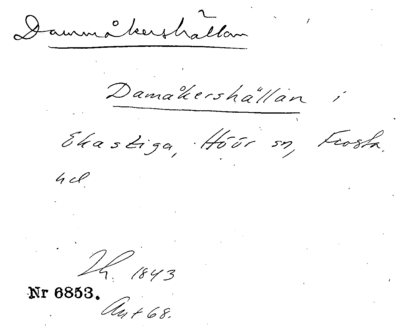 Dammåkershällan
Damåkershällan i
Ekastiga, Höör sn, Frosta
hd.
1843
Nr 6853.
Ant 68.